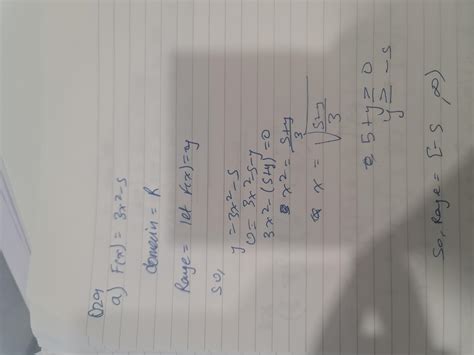 Q29
a) F(x) = 3x²-5
domain = R
Rage = let F(x)=y
so,
y = 3x²-5
0 = 3x²-5-y
3x²-(5+y)=0
x² = 5+y/3
x = √5-y/3
5+y ≥ 0
y ≥ -5
So, Rage = [-5, ∞)